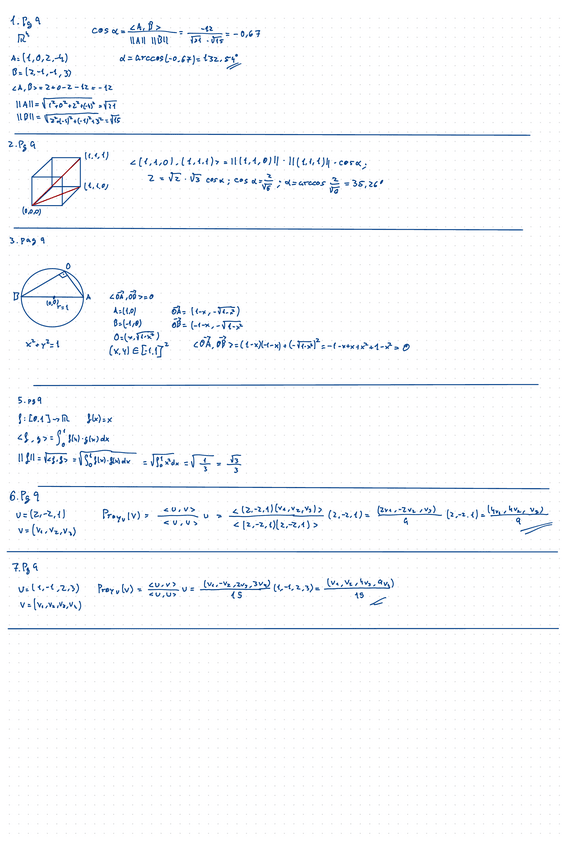 1. Pg 9
ℝ⁴
cos α = <A, B> / ||A|| ||B|| = -12 / √21 · √15 = -0,67
A = (1, 0, 2, -4)
α = arccos(-0,67) = 132,54°
B = (2, -1, -1, 3)
<A, B> = 2+0-2-12 = -12
||A|| = √1²+0²+2²+(-4)² = √21
||B|| = √2²+(-1)²+(-1)²+3² = √15
2. Pg 9
(1,1,1)
(1,1,0)
(0,0,0)
<(1,1,0), (1,1,1)> = ||(1,1,0)|| · ||(1,1,1)|| · cos α;
2 = √2 · √3 cos α; cos α = 2/√6; α = arccos 2/√6 = 35,26°
3. pag 9
O
B
A
(0,0)
r=1
x²+y²=1
<OA, OB> = 0
A = (1,0)
B = (-1,0)
O = (x, √1-x²)
(x,y) ∈ [-1,1]²
OA = (1-x, -√1-x²)
OB = (-1-x, -√1-x²
<OA, OB> = (1-x)(-1-x) + (-√1-x²)² = -1-x+x+x²+1-x² = 0
5. pg 9
f: [0,1] → ℝ f(x) = x
<f, g> = ∫₀¹ f(x) · g(x) dx
||f|| = √<f, f> = √∫₀¹ f(x) · f(x) dx = √∫₀¹ x² dx = √1/3 = √3/3
6. Pg 9
U = (2, -2, 1)
V = (v₁, v₂, v₃)
Proyᵤ(v) = <u,v> / <u,u> u = <(2,-2,1)(v₁,v₂,v₃)> / <(2,-2,1)(2,-2,1)> (2,-2,1) = (2v₁, -2v₂, v₃) / 9 (2,-2,1) = (4v₁, 4v₂, v₃) / 9
7. Pg 9
U = (1, -1, 2, 3)
V = (v₁, v₂, v₃, v₄)
Proyᵤ(v) = <u,v> / <u,u> u = (v₁, -v₂, 2v₃, 3v₄) / 15 (1,-1,2,3) = (v₁, v₂, 4v₃, 9v₄) / 15